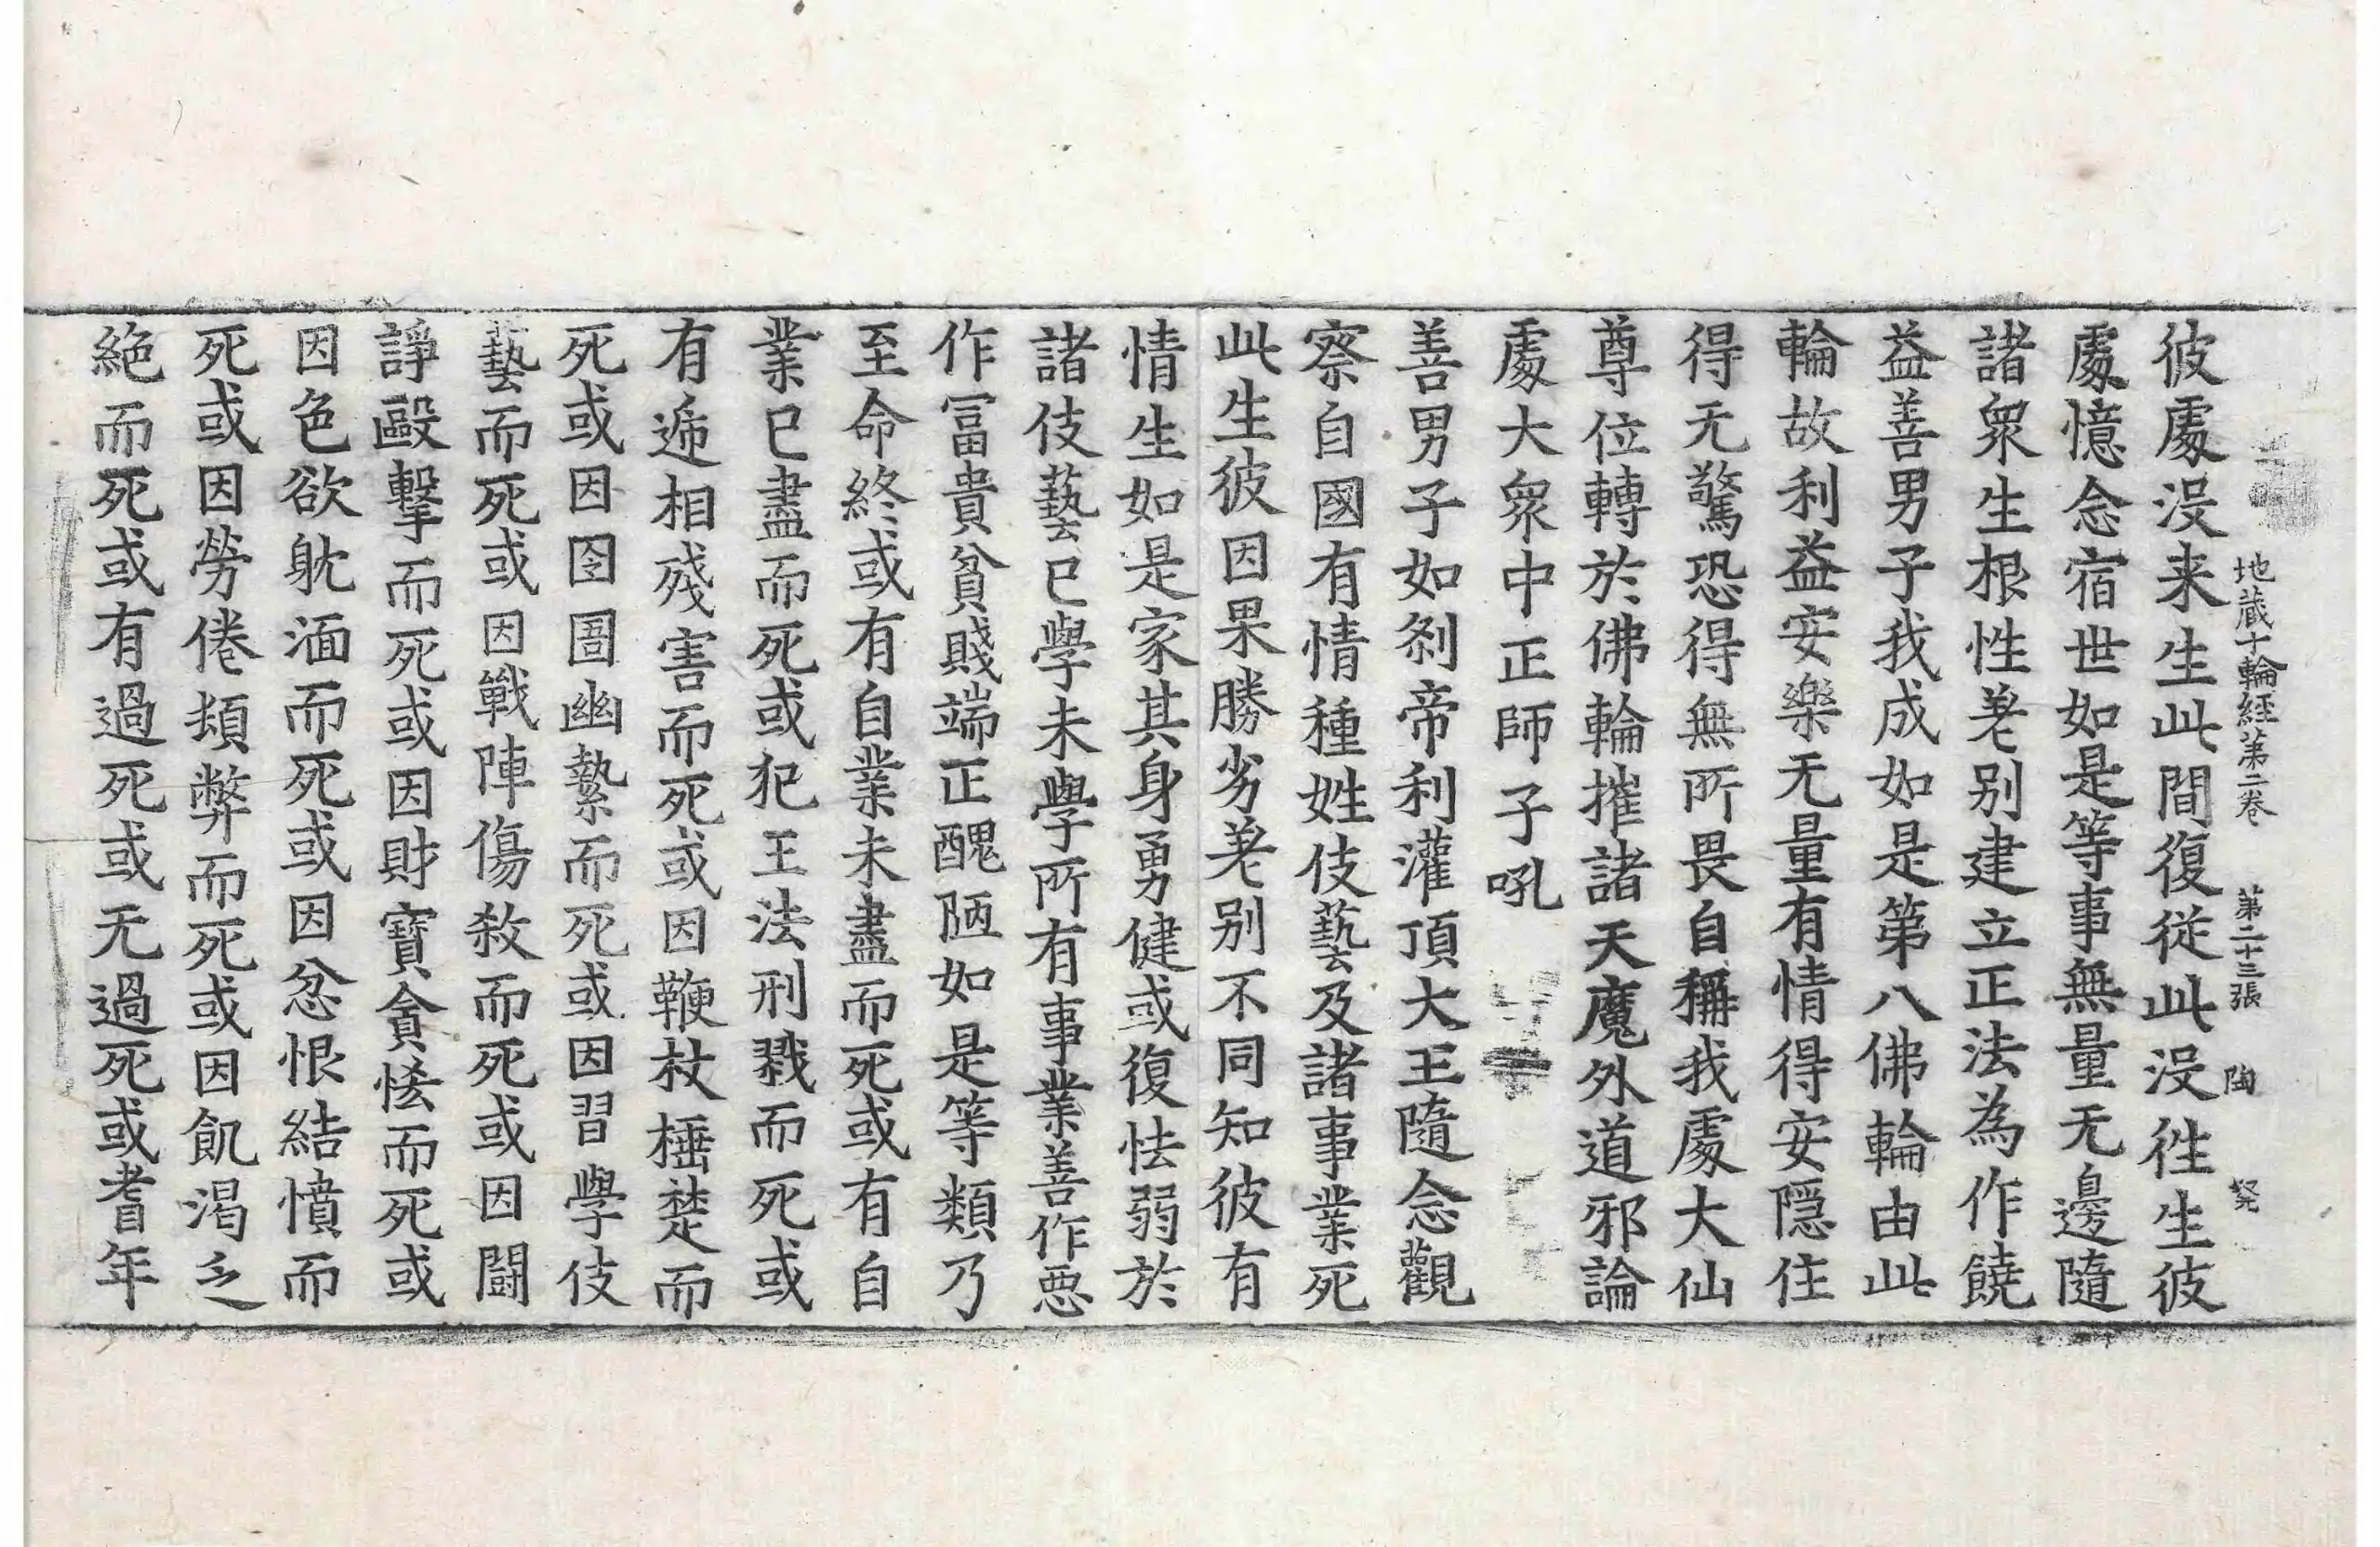 地藏十輪經第二卷　第二十三張　陶
彼處没来生此間復從此没徃生彼
處憶念宿世如是等事無量无邊隨
諸衆生根性差别建立正法為作饒
益善男子我成如是第八佛輪由此
輪故利益安樂无量有情得安隱住
得无驚恐得無所畏自稱我處大仙
尊位轉於佛輪摧諸天魔外道邪論
處大衆中正師子吼
善男子如刹帝利灌頂大王隨念觀
察自國有情種姓伎藝及諸事業死
此生彼因果勝劣差别不同知彼有
情生如是家其身勇健或復怯弱於
諸伎藝已學未學所有事業善作惡
作冨貴貧賤端正醜陋如是等類乃
至命終或有自業未盡而死或有自
業已盡而死或犯王法刑戮而死或
有遞相殘害而死或因鞭杖棰楚而
死或因囹圄幽縶而死或因習學伎
藝而死或因戰陣傷殺而死或因鬪
諍毆擊而死或因財寶貪悋而死或
因色欲躭湎而死或因忿恨結憤而
死或因勞倦頓弊而死或因飢渴乏
絶而死或有過死或无過死或耆年